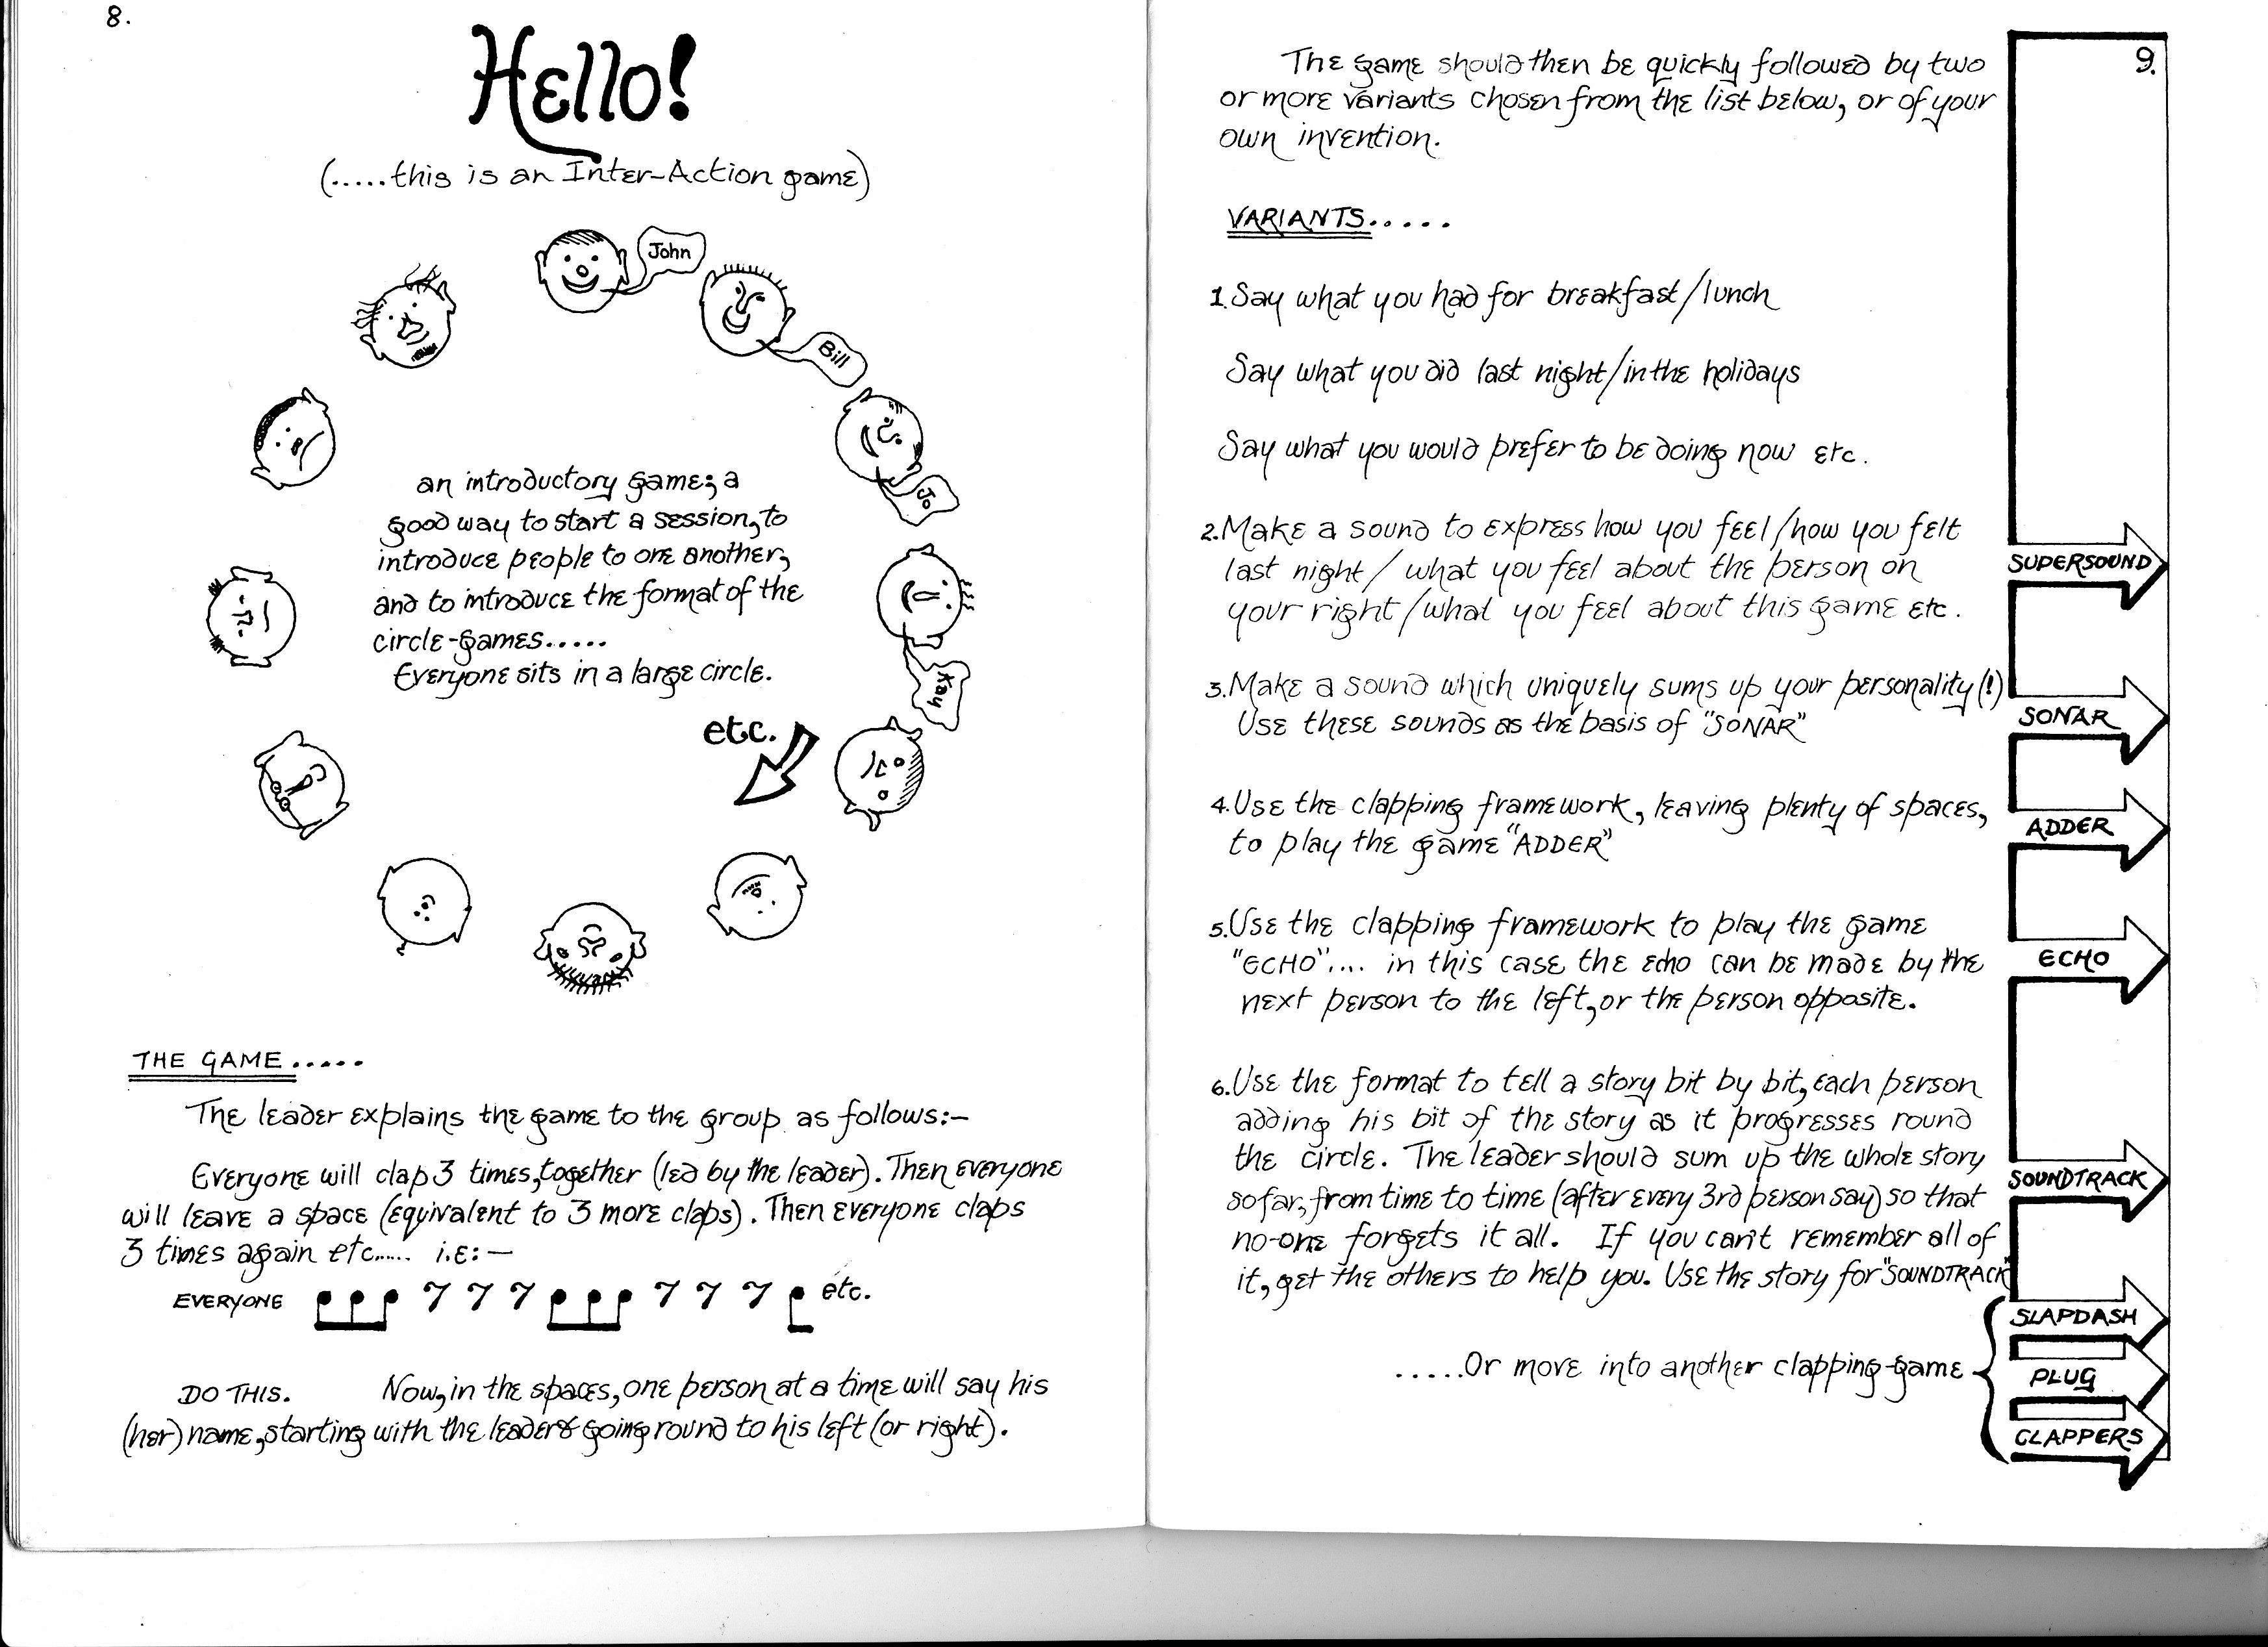 8.
Hello!
(.....this is an Inter-Action game)
John
Bill
Jo
Kay
an introductory game; a
good way to start a session, to
introduce people to one another,
and to introduce the format of the
circle-games.....
Everyone sits in a large circle.
etc.
THE GAME.....
The leader explains the game to the group as follows:-
Everyone will clap 3 times, together (led by the leader). Then everyone
will leave a space (equivalent to 3 more claps). Then everyone claps
3 times again etc..... i.e:-
EVERYONE etc.
DO THIS. Now, in the spaces, one person at a time will say his
(her) name, starting with the leader & going round to his left (or right).
9.
The game should then be quickly followed by two
or more variants chosen from the list below, or of your
own invention.
VARIANTS.....
1. Say what you had for breakfast/lunch
Say what you did last night/in the holidays
Say what you would prefer to be doing now etc.
2. Make a sound to express how you feel/how you felt
last night/ what you feel about the person on
your right/what you feel about this game etc.
SUPERSOUND
3. Make a sound which uniquely sums up your personality(!)
Use these sounds as the basis of "SONAR"
SONAR
4. Use the clapping framework, leaving plenty of spaces,
to play the game "ADDER"
ADDER
5. Use the clapping framework to play the game
"ECHO".... in this case the echo can be made by the
next person to the left, or the person opposite.
ECHO
6. Use the format to tell a story bit by bit, each person
adding his bit of the story as it progresses round
the circle. The leader should sum up the whole story
so far, from time to time (after every 3rd person say) so that
no-one forgets it all. If you can't remember all of
it, get the others to help you. Use the story for "SOUNDTRACK"
SOUNDTRACK
.....Or move into another clapping-game
SLAPDASH
PLUG
CLAPPERS